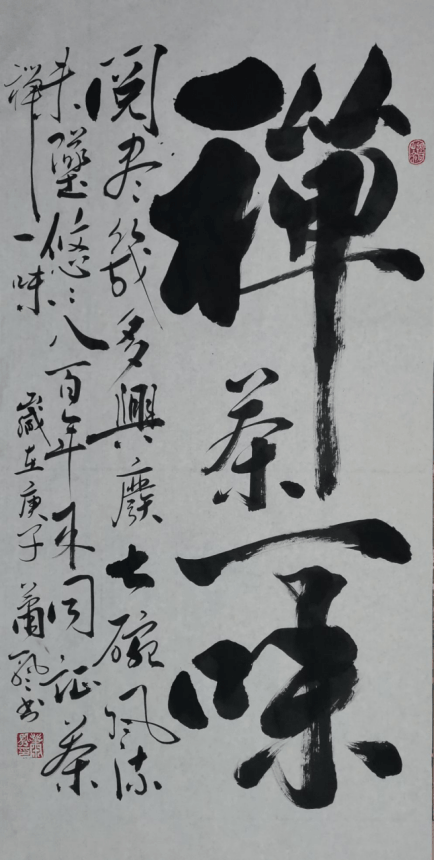 禪茶一味
閱盡幾多興廢七碗風流
未墜悠々八百年來同證茶
禪一味
歲在庚子蕭風書